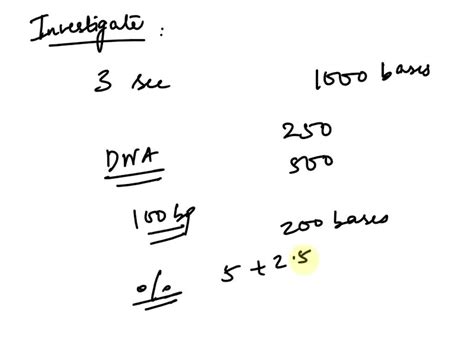 Investigate :
3 sec 1000 bases
250
DNA 500
100 bp 200 bases
% 5 + 2.5